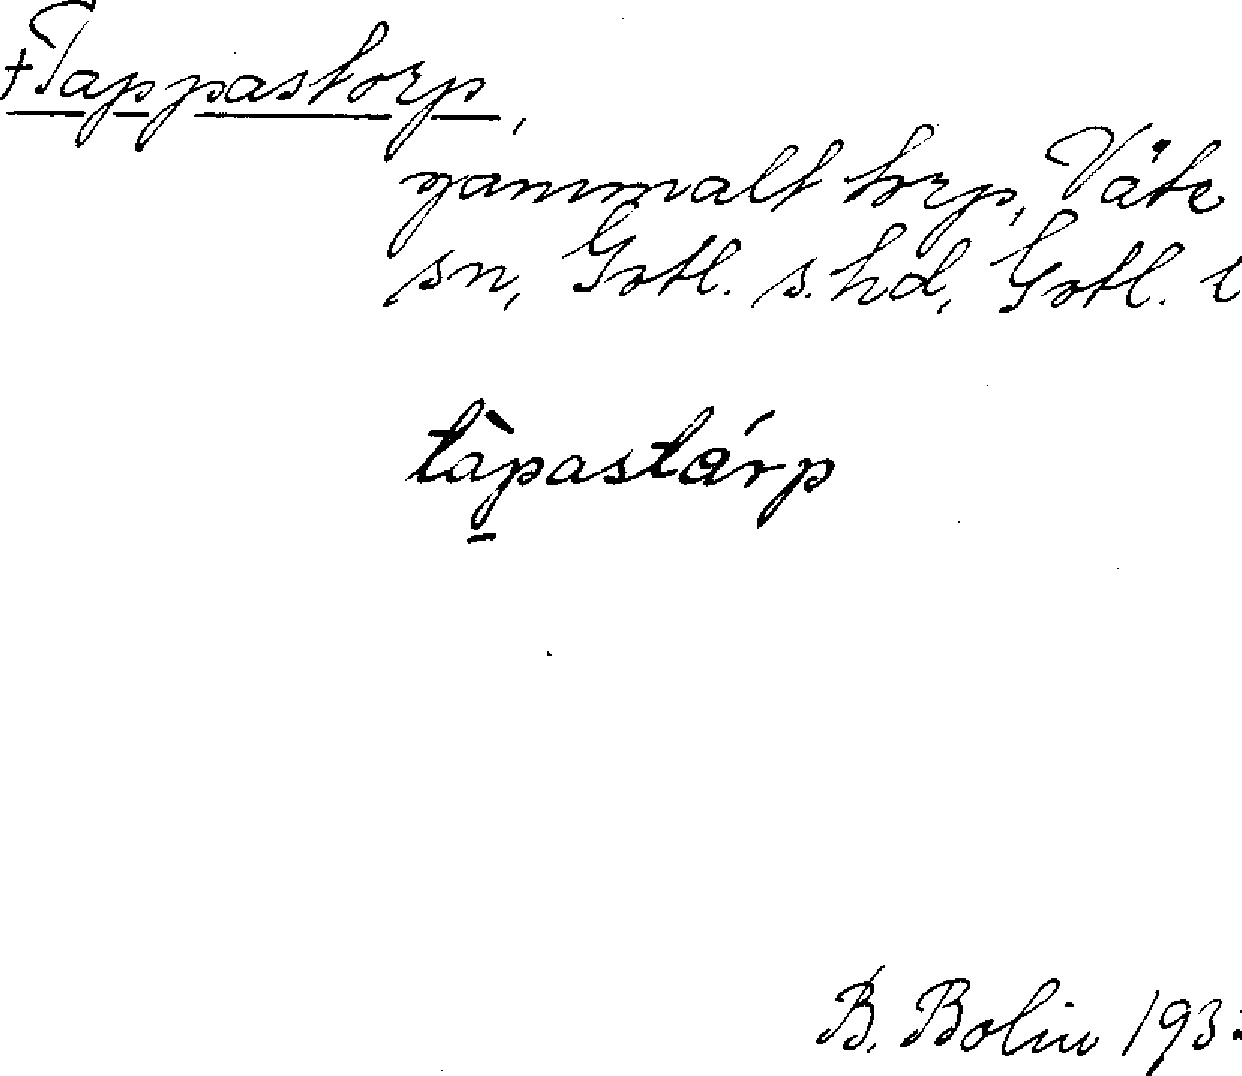 †Tappastorp,
gammalt torp, Väte
sn, Gotl. s. hd, Gotl. l
tàpastárp
B. Bolin 193